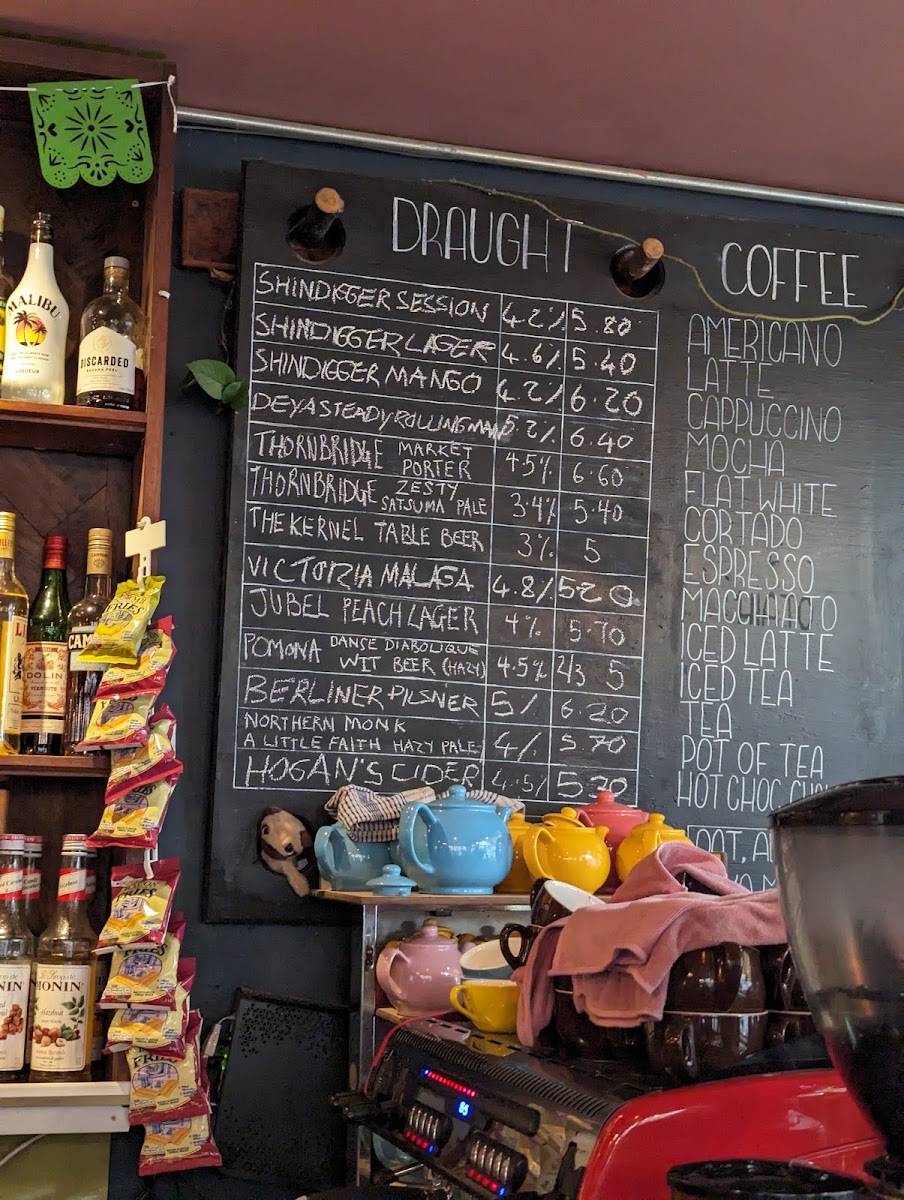 DRAUGHT
SHINDIGGER SESSION 4.2% 5.80
SHINDIGGER LAGER 4.6% 5.40
SHINDIGGER MANGO 4.2% 6.20
DEYA STEADY ROLLING MAN 5.2% 6.40
THORNBRIDGE MARKET PORTER 4.5% 6.60
THORNBRIDGE ZESTY SATSUMA PALE 3.4% 5.40
THE KERNEL TABLE BEER 3% 5
VICTORIA MALAGA 4.8% 5.20
JUBEL PEACH LAGER 4% 5.70
POMONA DANSE DIABOLIQUE
WIT BEER (HAZY) 4.5% 2/3 5
BERLINER PILSNER 5% 6.20
NORTHERN MONK
A LITTLE FAITH HAZY PALE 4% 5.70
HOGAN'S CIDER 4.5% 5.20
COFFEE
AMERICANO
LATTE
CAPPUCCINO
MOCHA
FLAT WHITE
CORTADO
ESPRESSO
MACCHIATO
ICED LATTE
ICED TEA
TEA
POT OF TEA
HOT CHOC
OAT,
MALIBU
LIQUEUR
DISCARDED
DOLIN
VERMOUTH
CAM
MONIN
Hazelnut
FRIES
85